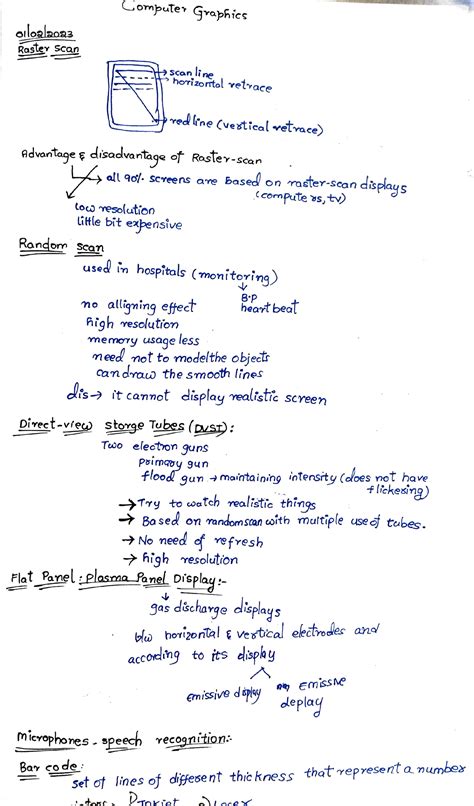 Computer Graphics
01/02/2023
Raster scan
scan line
horizontal retrace
red line (vertical retrace)
Advantage & disadvantage of Raster-scan
all 90% screens are based on raster-scan displays
(computers, tv)
low resolution
little bit expensive
Random scan
used in hospitals (monitoring)
B.P
heart beat
no alligning effect
high resolution
memory usage less
need not to model the objects
can draw the smooth lines
dis → it cannot display realistic screen
Direct-view storge Tubes (DVST):
Two electron guns
primary gun
flood gun → maintaining intensity (does not have
flickering)
→ Try to watch realistic things
→ Based on random scan with multiple use of tubes.
→ No need of refresh
→ high resolution
Flat Panel: Plasma Panel Display:-
gas discharge displays
b/w horizontal & vertical electrodes and
according to its display
emissive display
Emissive
deplay
microphones - speech recognition:-
Bar code:
set of lines of different thickness that represent a number